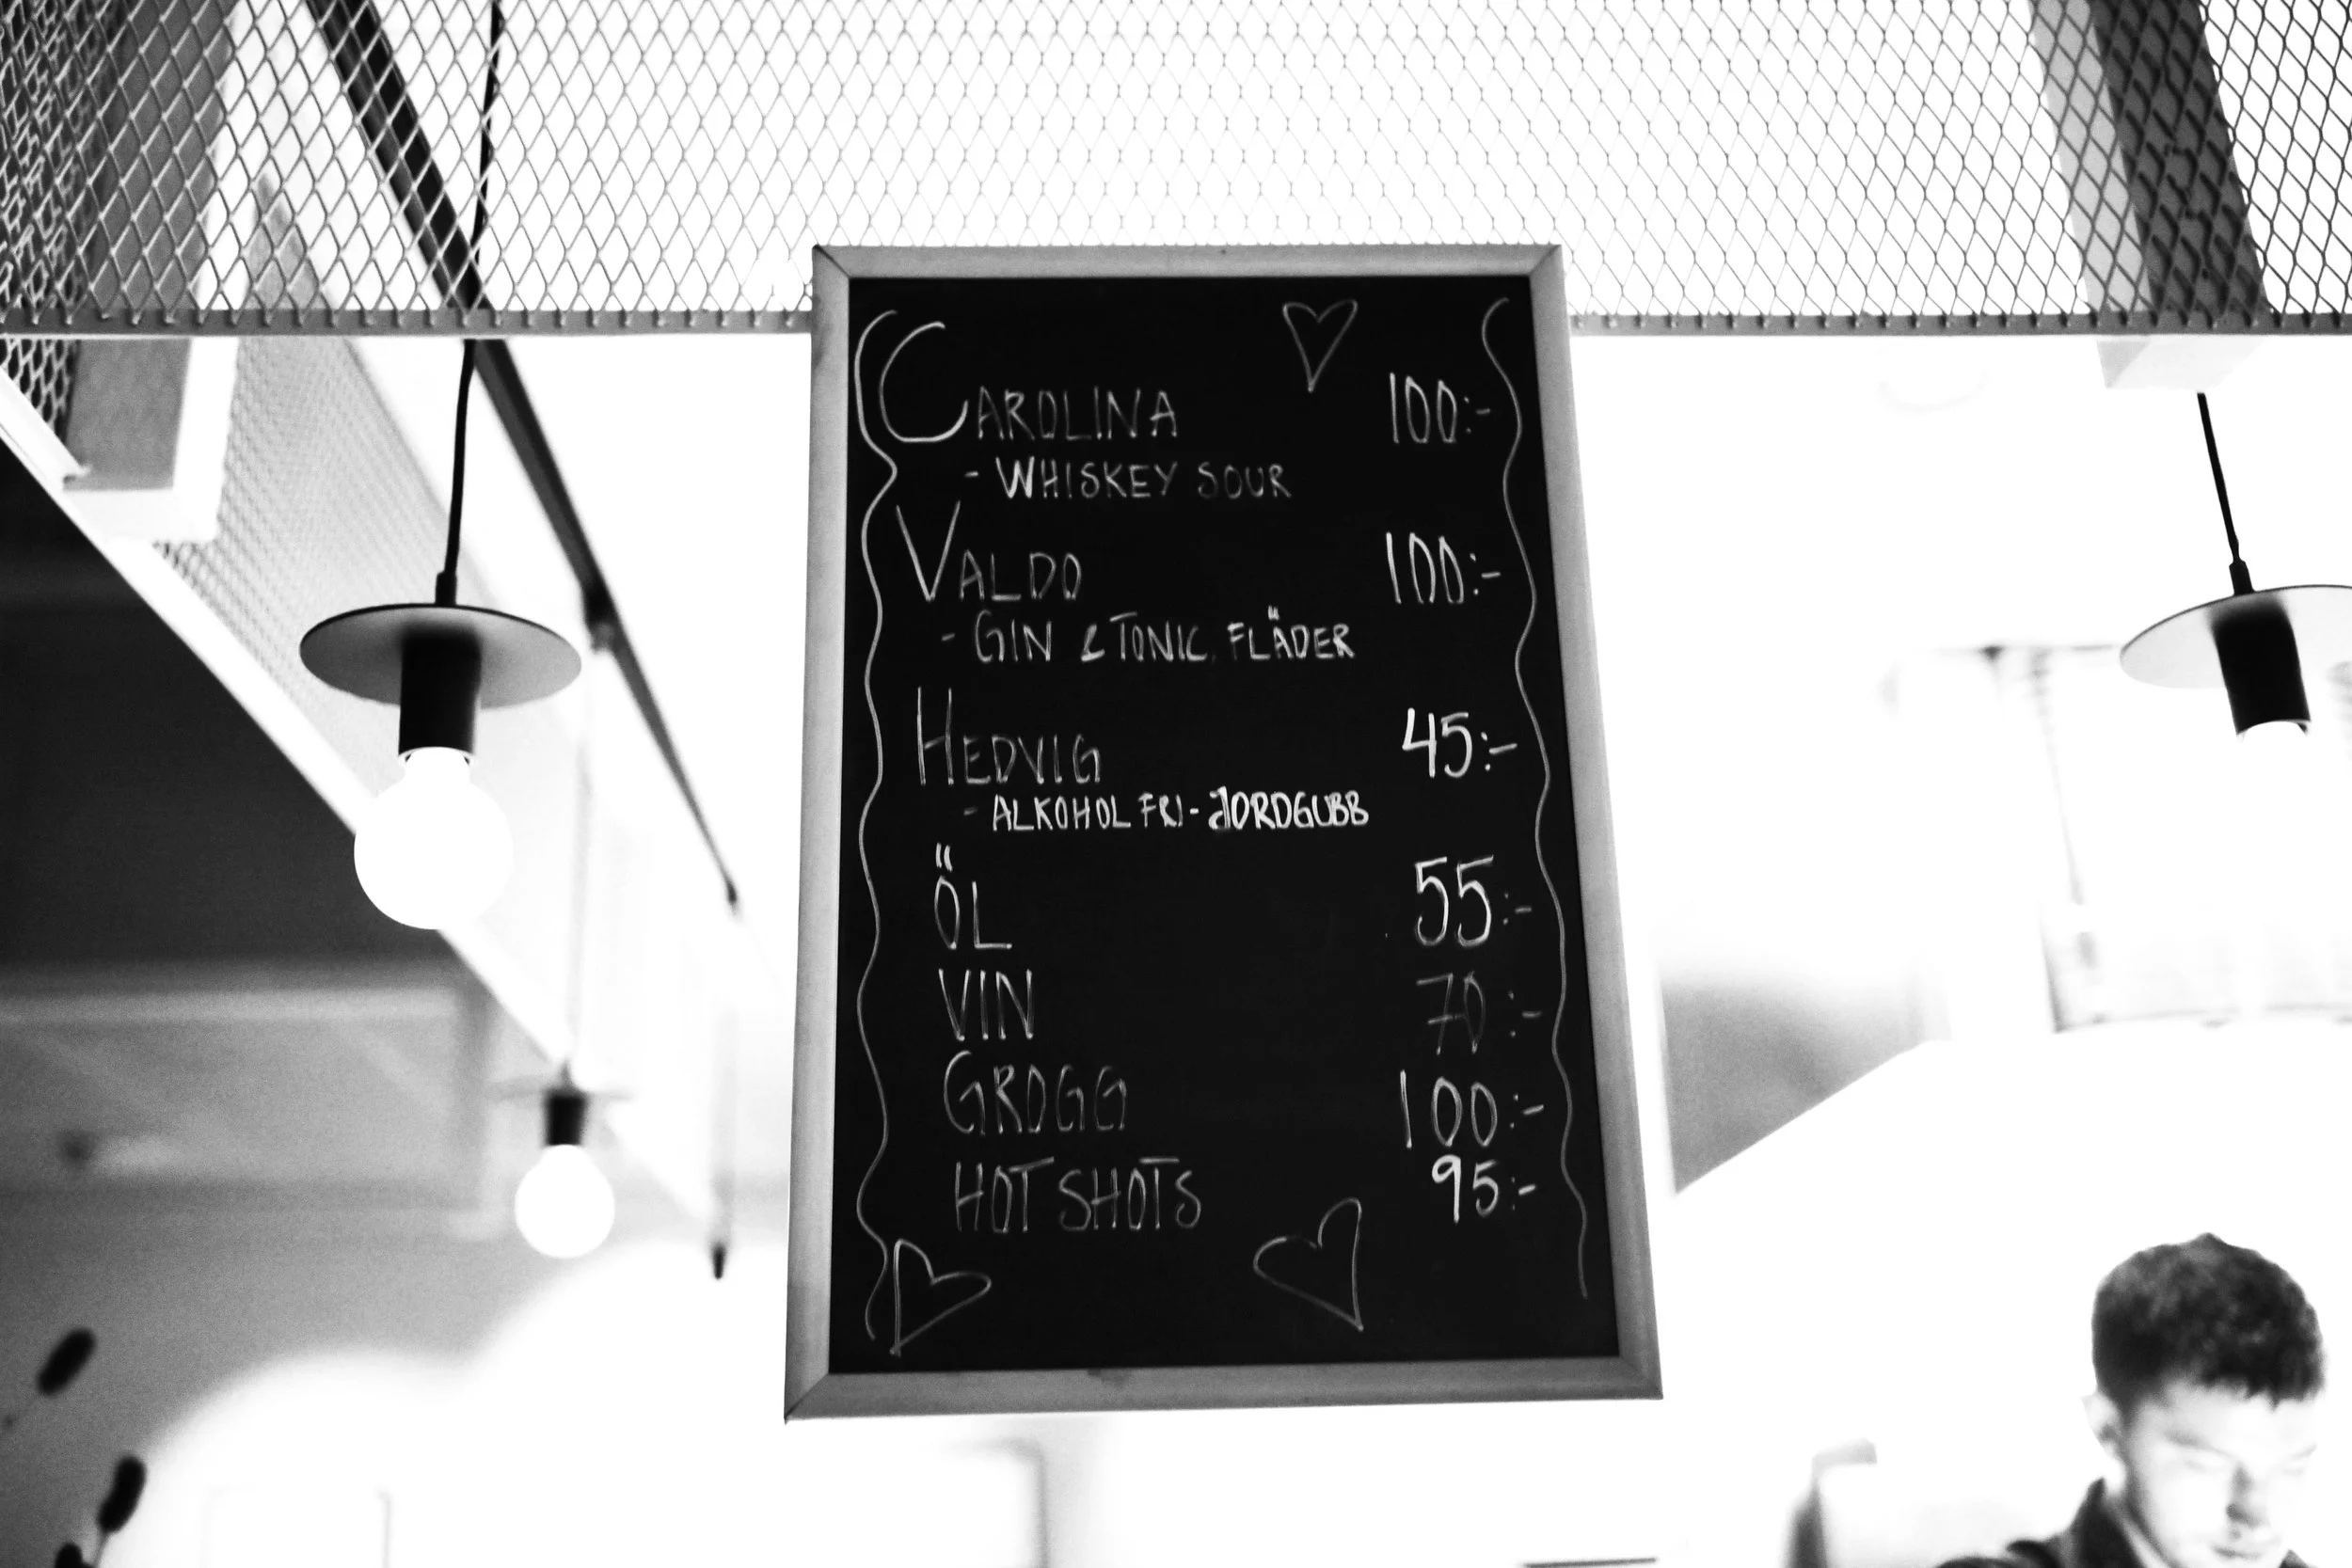 CAROLINA 100:-
- WHISKEY SOUR
VALDO 100:-
- GIN & TONIC, FLÄDER
HEDVIG 45:-
- ALKOHOL FRI - JORDGUBB
ÖL 55:-
VIN 70:-
GROGG 100:-
HOT SHOTS 95:-